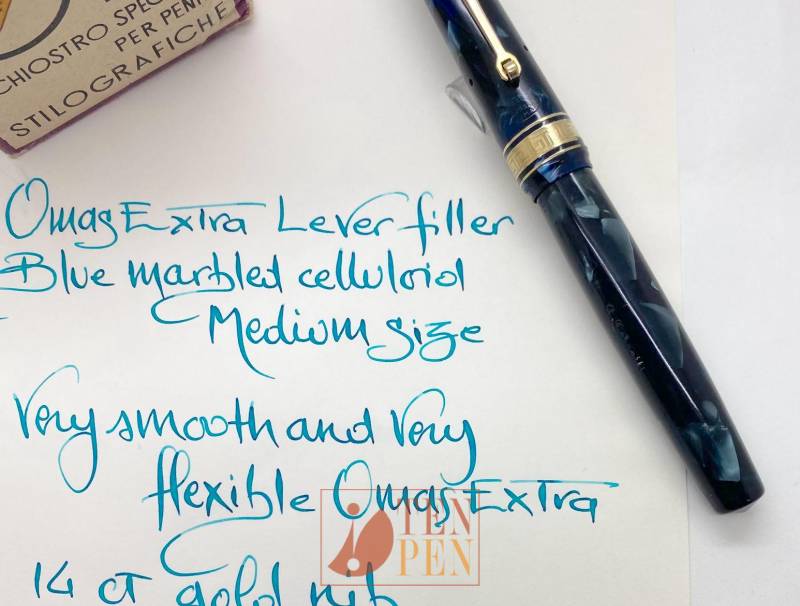 CHIOSTRO SPEC
PER PEN
STILOGRAFICHE
Omas Extra Lever filler
Blue marbled celluloid
Medium size
Very smooth and very
flexible Omas Extra
14 ct gold nib
TEN
PEN